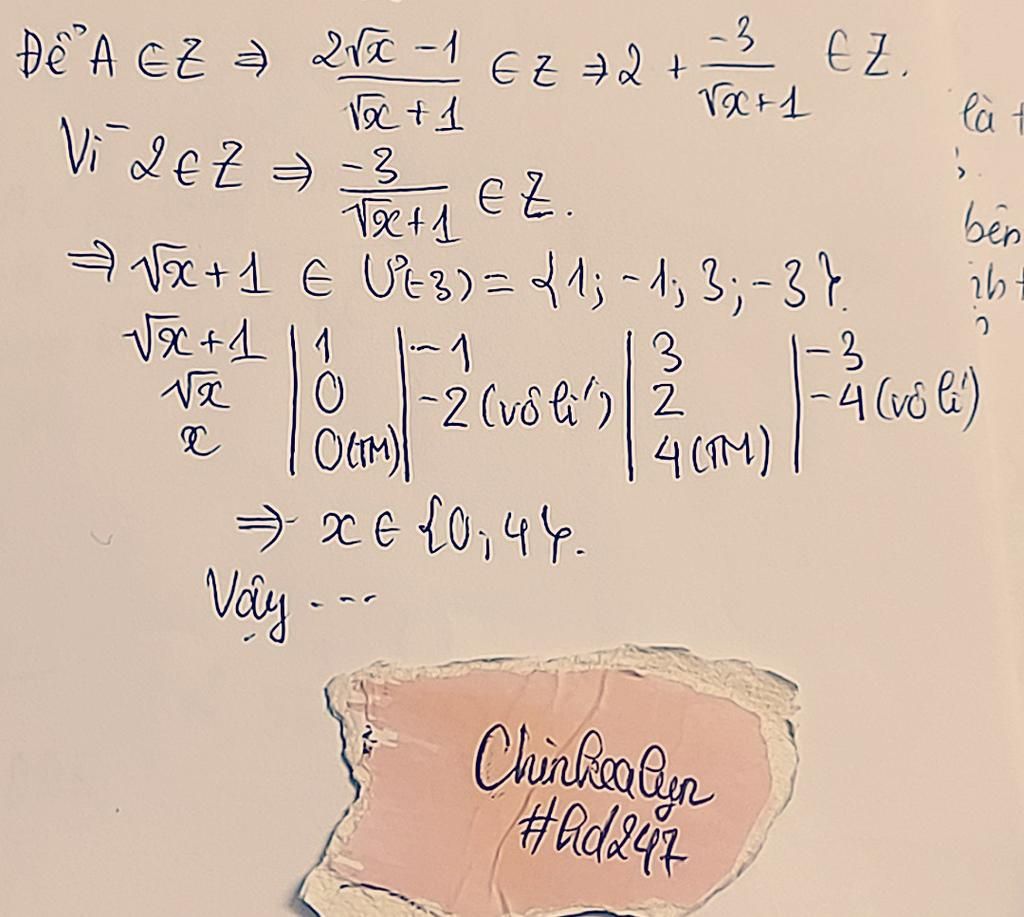 Để A ∈ Z ⇒ (2√x - 1)/(√x + 1) ∈ Z ⇒ 2 + (-3)/(√x + 1) ∈ Z.
Vì 2 ∈ Z ⇒ (-3)/(√x + 1) ∈ Z.
⇒ √x + 1 ∈ Ư(-3) = {1; -1; 3; -3}.
√x + 1 | 1 | -1 | 3 | -3
√x | 0 | -2 (vô lí) | 2 | -4 (vô lí)
x | 0 (TM) | | 4 (TM) |
⇒ x ∈ {0; 4}.
Vậy ---
là
bên
#hd247